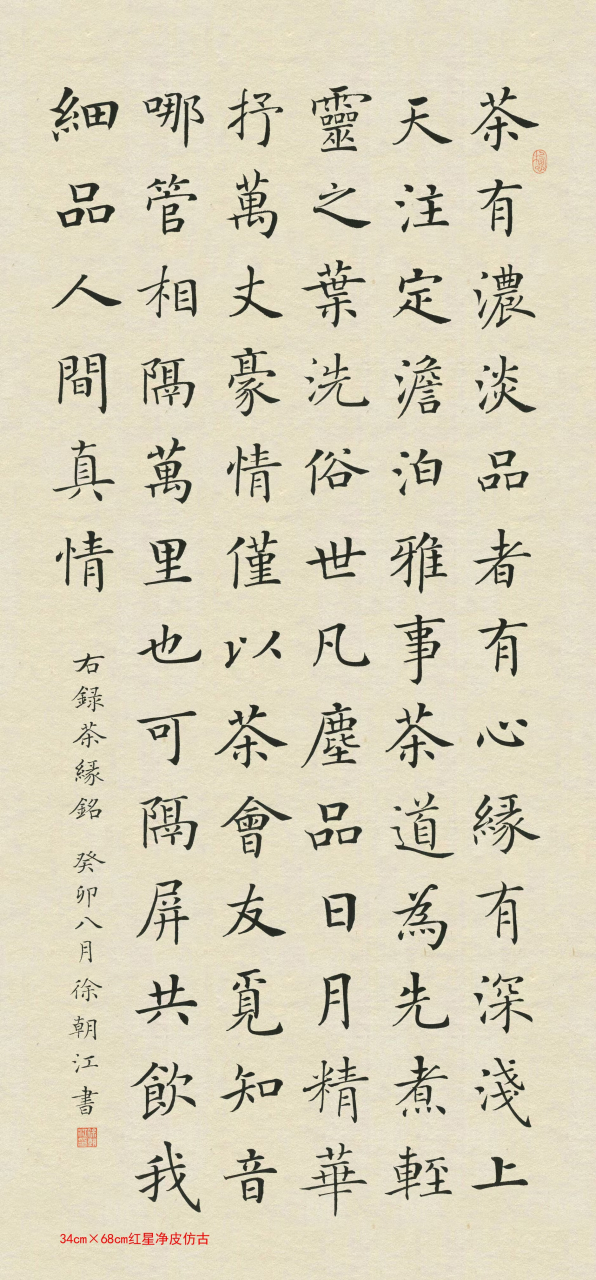 茶有濃淡品者有心緣有深淺上
天注定澹泊雅事茶道為先煮輕
靈之葉洗俗世凡塵品日月精華
抒萬丈豪情僅以茶會友覓知音
哪管相隔萬里也可隔屏共飲我
細品人間真情
右録茶緣銘 癸卯八月徐朝江書
34cm×68cm红星净皮仿古